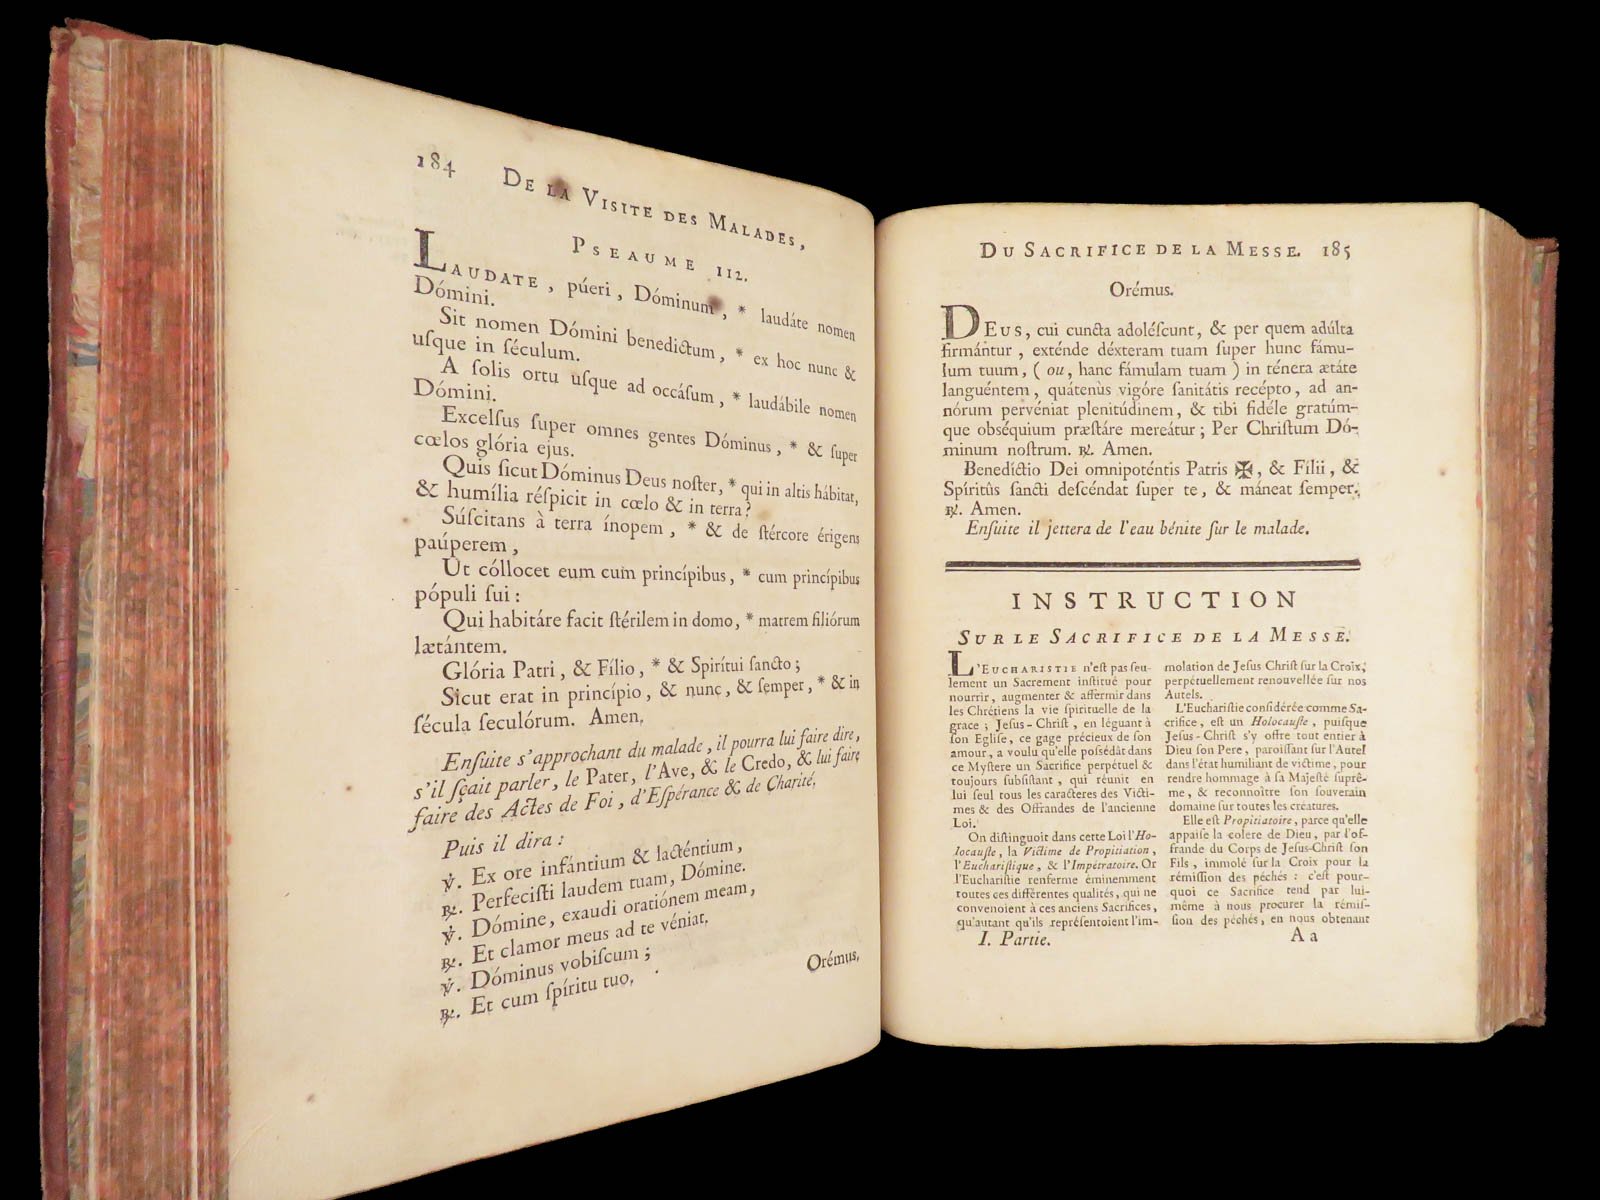 184 DE LA VISITE DES MALADES,
PSEAUME 112.
LAUDATE, púeri, Dóminum, * laudáte nomen
Dómini.
Sit nomen Dómini benedictum, * ex hoc nunc &
uſque in ſéculum.
A ſolis ortu uſque ad occáſum, * laudábile nomen
Dómini.
Excelſus ſuper omnes gentes Dóminus, * & ſuper
cœlos glória ejus.
Quis ſicut Dóminus Deus noſter, * qui in altis hábitat,
& humília réſpicit in cœlo & in terra?
Súſcitans à terra ínopem, * & de ſtércore érigens
paúperem,
Ut cóllocet eum cum princípibus, * cum princípibus
pópuli ſui :
Qui habitáre facit ſtérilem in domo, * matrem filiórum
lætántem.
Glória Patri, & Fílio, * & Spirítui ſancto;
Sicut erat in princípio, & nunc, & ſemper, * & in
ſécula ſeculórum. Amen.
Enſuite s'approchant du malade, il pourra lui faire dire,
s'il ſçait parler, le Pater, l'Ave, & le Credo, & lui faire
faire des Actes de Foi, d'Eſpérance & de Charité.
Puis il dira :
℣. Ex ore infántium & lacténtium,
℟. Perfeciſti laudem tuam, Dómine.
℣. Dómine, exaudi oratiónem meam,
℟. Et clamor meus ad te véniat.
℣. Dóminus vobiſcum ;
℟. Et cum ſpíritu tuo.
Orémus.
DU SACRIFICE DE LA MESSE. 185
Orémus.
DEUS, cui cuncta adoléſcunt, & per quem adúlta
firmántur, exténde déxteram tuam ſuper hunc fámu-
lum tuum, ( ou, hanc fámulam tuam ) in ténera ætáte
languéntem, quátenùs vigóre ſanitátis recépto, ad an-
nórum pervéniat plenitúdinem, & tibi fidéle gratúm-
que obséquium præſtáre mereátur ; Per Chriſtum Dó-
minum noſtrum. ℟. Amen.
Benedíctio Dei omnipoténtis Patris ✠, & Fílii, &
Spíritûs ſancti deſcéndat ſuper te, & máneat ſemper.
℟. Amen.
Enſuite il jettera de l'eau bénite ſur le malade.
INSTRUCTION
SUR LE SACRIFICE DE LA MESSE.
L'EUCHARISTIE n'eſt pas ſeu-
lement un Sacrement inſtitué pour
nourrir, augmenter & affermir dans
les Chrétiens la vie ſpirituelle de la
grace ; Jeſus-Chriſt, en léguant à
ſon Egliſe, ce gage précieux de ſon
amour, a voulu qu'elle poſſédât dans
ce Myſtere un Sacrifice perpétuel &
toujours ſubſiſtant, qui réunit en
lui ſeul tous les caracteres des Victi-
mes & des Offrandes de l'ancienne
Loi.
On diſtinguoit dans cette Loi l'Ho-
locauſte, la Victime de Propitiation,
l'Euchariſtique, & l'Impétratoire. Or
l'Euchariſtie renferme éminemment
toutes ces différentes qualités, qui ne
convenoient à ces anciens Sacrifices,
qu'autant qu'ils repréſentoient l'im-
molation de Jeſus-Chriſt ſur la Croix,
perpétuellement renouvellée ſur nos
Autels.
L'Euchariſtie conſidérée comme Sa-
crifice, eſt un Holocauſte, puiſque
Jeſus-Chriſt s'y offre tout entier à
Dieu ſon Pere, paroiſſant ſur l'Autel
dans l'état humiliant de victime, pour
rendre hommage à ſa Majeſté ſuprê-
me, & reconnoître ſon ſouverain
domaine ſur toutes les créatures.
Elle eſt Propitiatoire, parce qu'elle
appaiſe la colere de Dieu, par l'of-
frande du Corps de Jeſus-Chriſt ſon
Fils, immolé ſur la Croix pour la
rémiſſion des péchés : c'eſt pour-
quoi ce Sacrifice tend par lui-
même à nous procurer la rémiſ-
ſion des péchés, en nous obtenant
I. Partie. A a